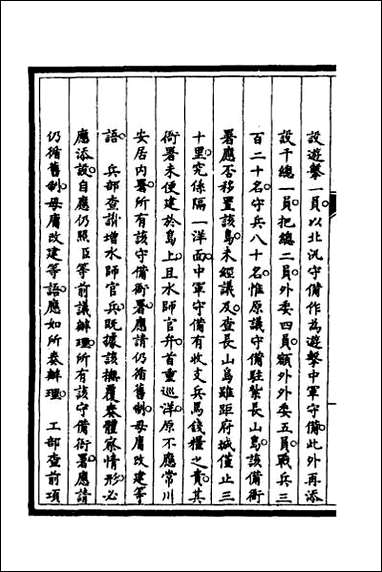 設遊擊一員以北汛守備作為遊擊中軍守備此外再添
設千總一員把總二員外委四員額外外委五員戰兵三
百二十名守兵八十名惟原議守備駐紮長山島該備衙
署應否移置該島未經議及查長山島雖距府城僅止三
十里究係隔一洋面中軍守備有收支兵馬錢糧之責其
衙署未便建於島上且水師官弁首重巡洋原不應常川
安居内署所有該守備衙署應請仍循舊制毋庸改建等
語　兵部查訓增水師官兵既據該撫覆奏體察情形必
應添設自應仍照臣等前議辦理所有該守備衙署應請
仍循舊制毋庸改建等語應如所奏辦理　工部查前項